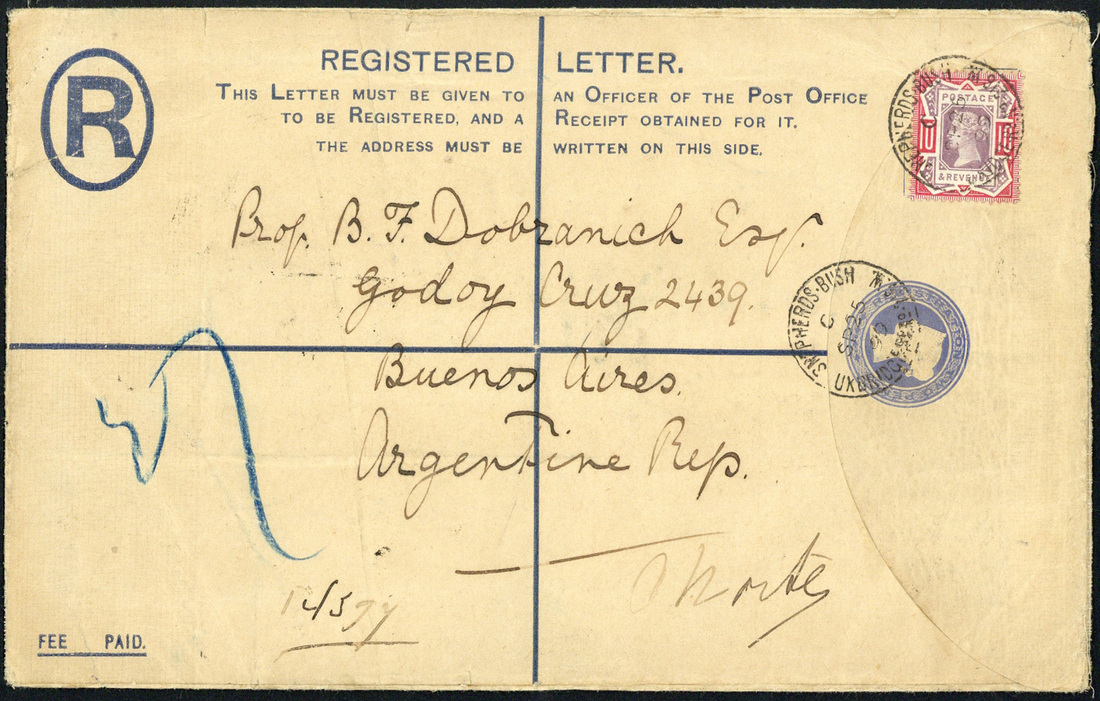 R
REGISTERED LETTER.
THIS LETTER MUST BE GIVEN TO AN OFFICER OF THE POST OFFICE
TO BE REGISTERED, AND A RECEIPT OBTAINED FOR IT.
THE ADDRESS MUST BE WRITTEN ON THIS SIDE.
SHEPHERDS-BUSH
POSTAGE
10
& REVENUE
Prof. B. F. Dobranich Esq.
Godoy Cruz 2439.
SHEPHERDS-BUSH
C
SP 25
00
Buenos Aires.
Argentine Rep.
FEE PAID.